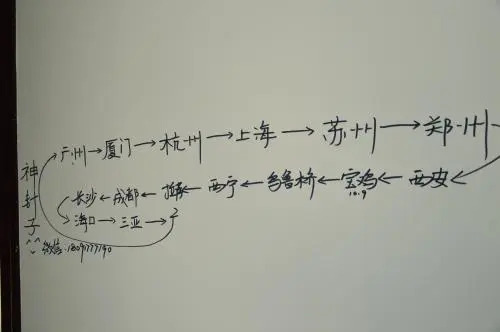 广州→厦门→杭州→上海→苏州→郑州
长沙←成都← ←西宁←乌鲁桥←宝鸡←西安
10.9
海口→三亚→?
神 子
微信:18091777190